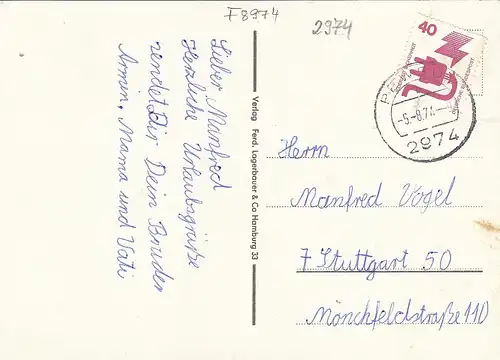 F8974
2974
Lieber Manfred
Herzliche Urlaubsgrüße
sendet Dir Dein Bruder
Armin, Mama und Vati
Verlag Ferd. Lagerbauer & Co Hamburg 33
40
-5.-8.74-
2974
Herrn
Manfred Vogel
7 Stuttgart 50
Mönchfeldstraße 110